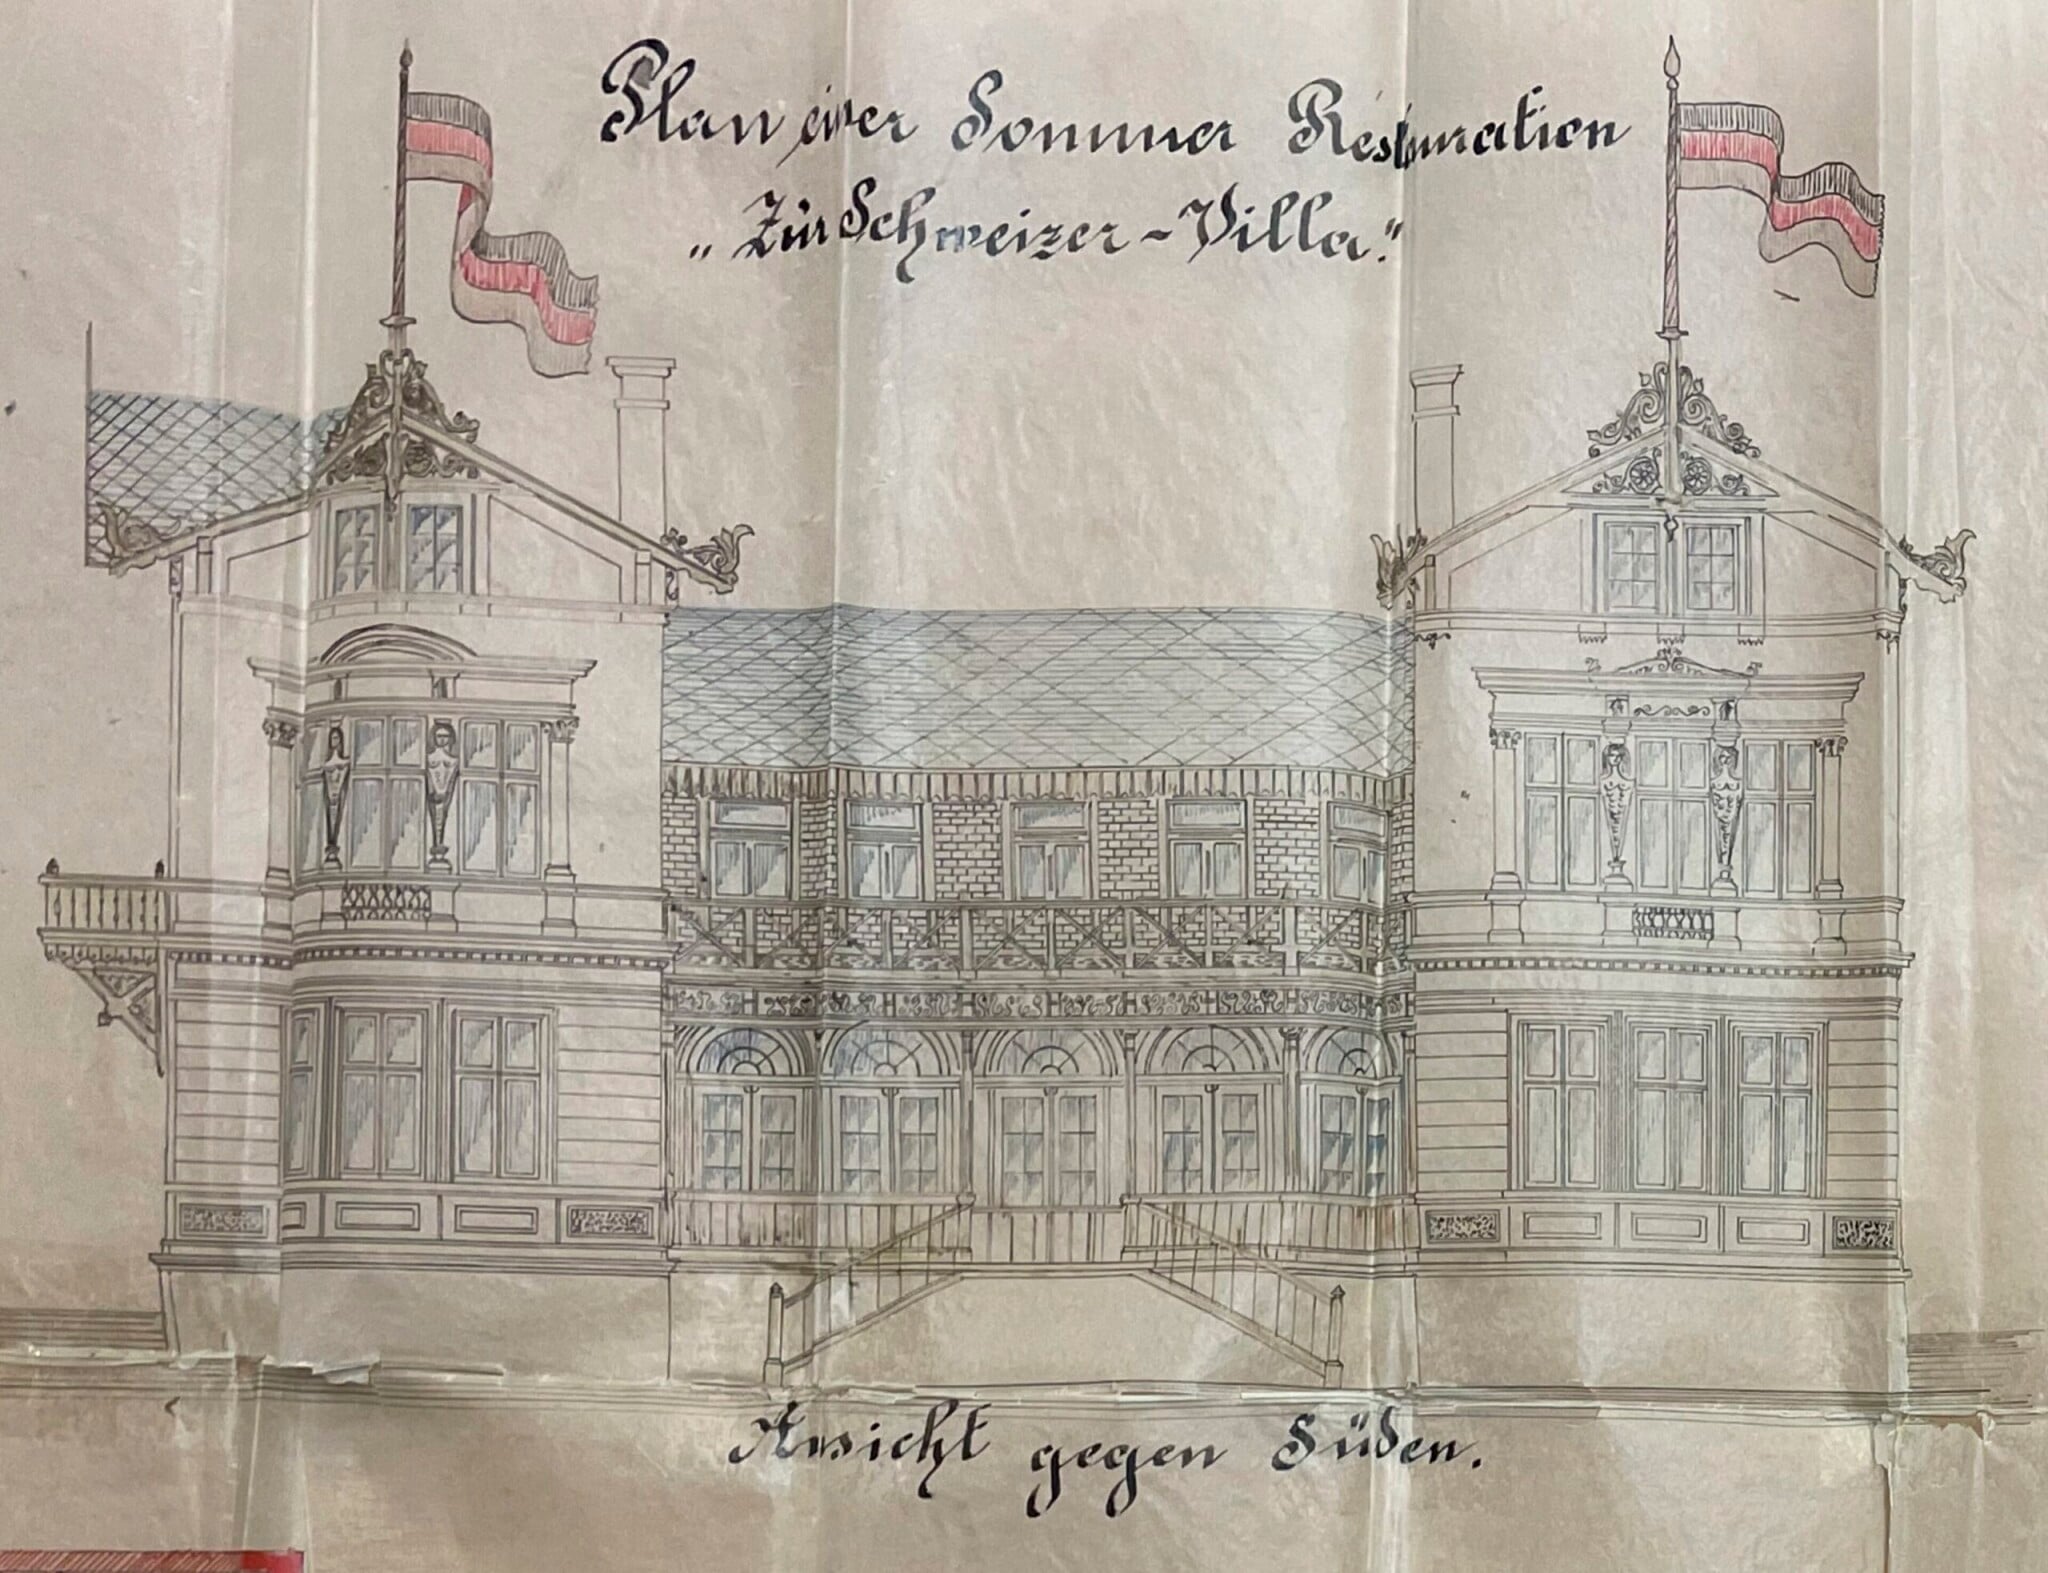 Plan einer Sommer Restauration
„Zur Schweizer-Villa."
Ansicht gegen Süden.